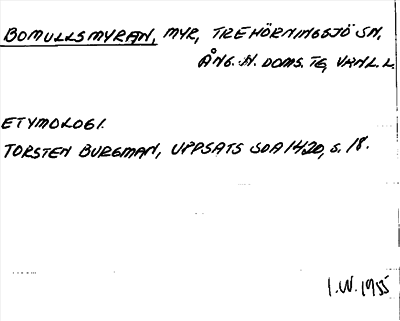 BOMULLSMYRAN, MYR, TREHÖRNINGSJÖ SN,
ÅNG. N. DOMS. TG, VKNL. L.
ETYMOLOGI.
TORSTEN BURGMAN, UPPSATS SOA 1420, S. 18.
I.W. 1955